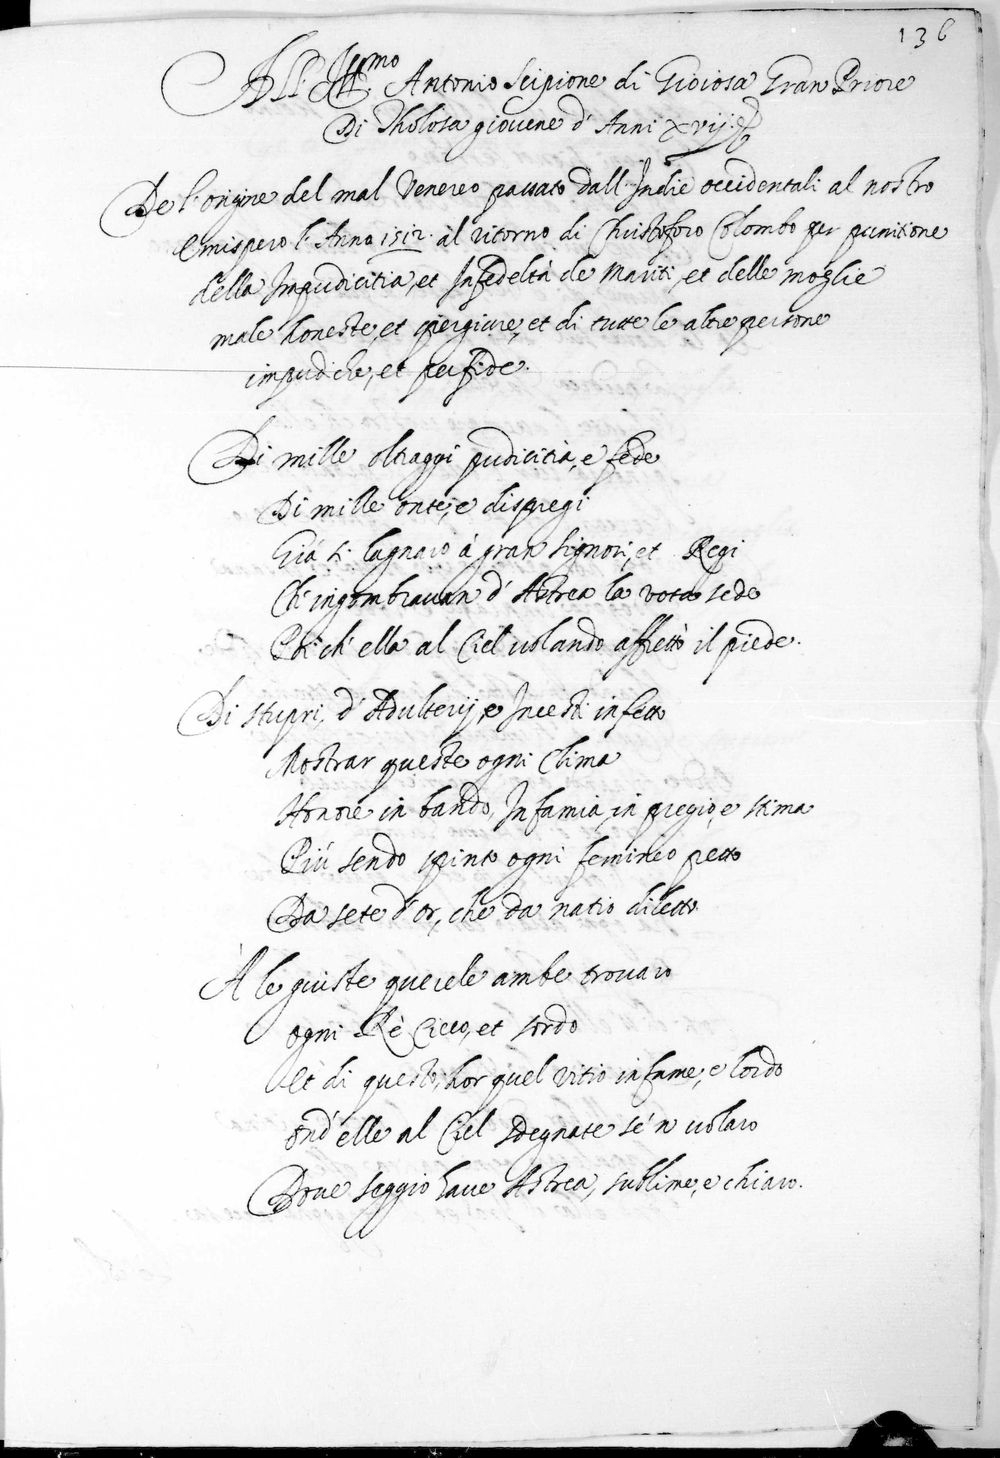 136
All' Ill.mo Antonio Scipione di Gioiosa Gran Priore
Di Tholosa giovene d' Anni xvij
De l' origine del mal Venereo passato dall' Indie occidentali al nostro
emispero l' Anno 1512. al ritorno di Christoforo Colombo per punitione
della Impudicitia, et Infedeltà de Mariti, et delle moglie
male honeste, et pergiure, et di tutte le altre persone
impudiche, et perfide.
Di mille oltraggi pudicitia, e fede
Di mille onte, e dispregi
Già si lagnaro á gran signori, et Regi
Ch' ingombravan d' Astrea la vota sede
Poi ch' ella al Ciel volando affrettò il piede.
Di stupri, d' Adulterij, e Incesti infetto
Mostrar queste ogni Clima
Honore in bando, Infamia in pregio, e stima
Più sendo spinto ogni femineo petto
Da sete d' or, che da natio diletto
À le giuste querele ambe trovaro
ogni Rè Cieco, et sordo
Et di questo, hor quel vitio infame, e lordo
ond' elle al Ciel sdegnate se 'n volaro
Dove seggio have Astrea, sublime, e chiaro.